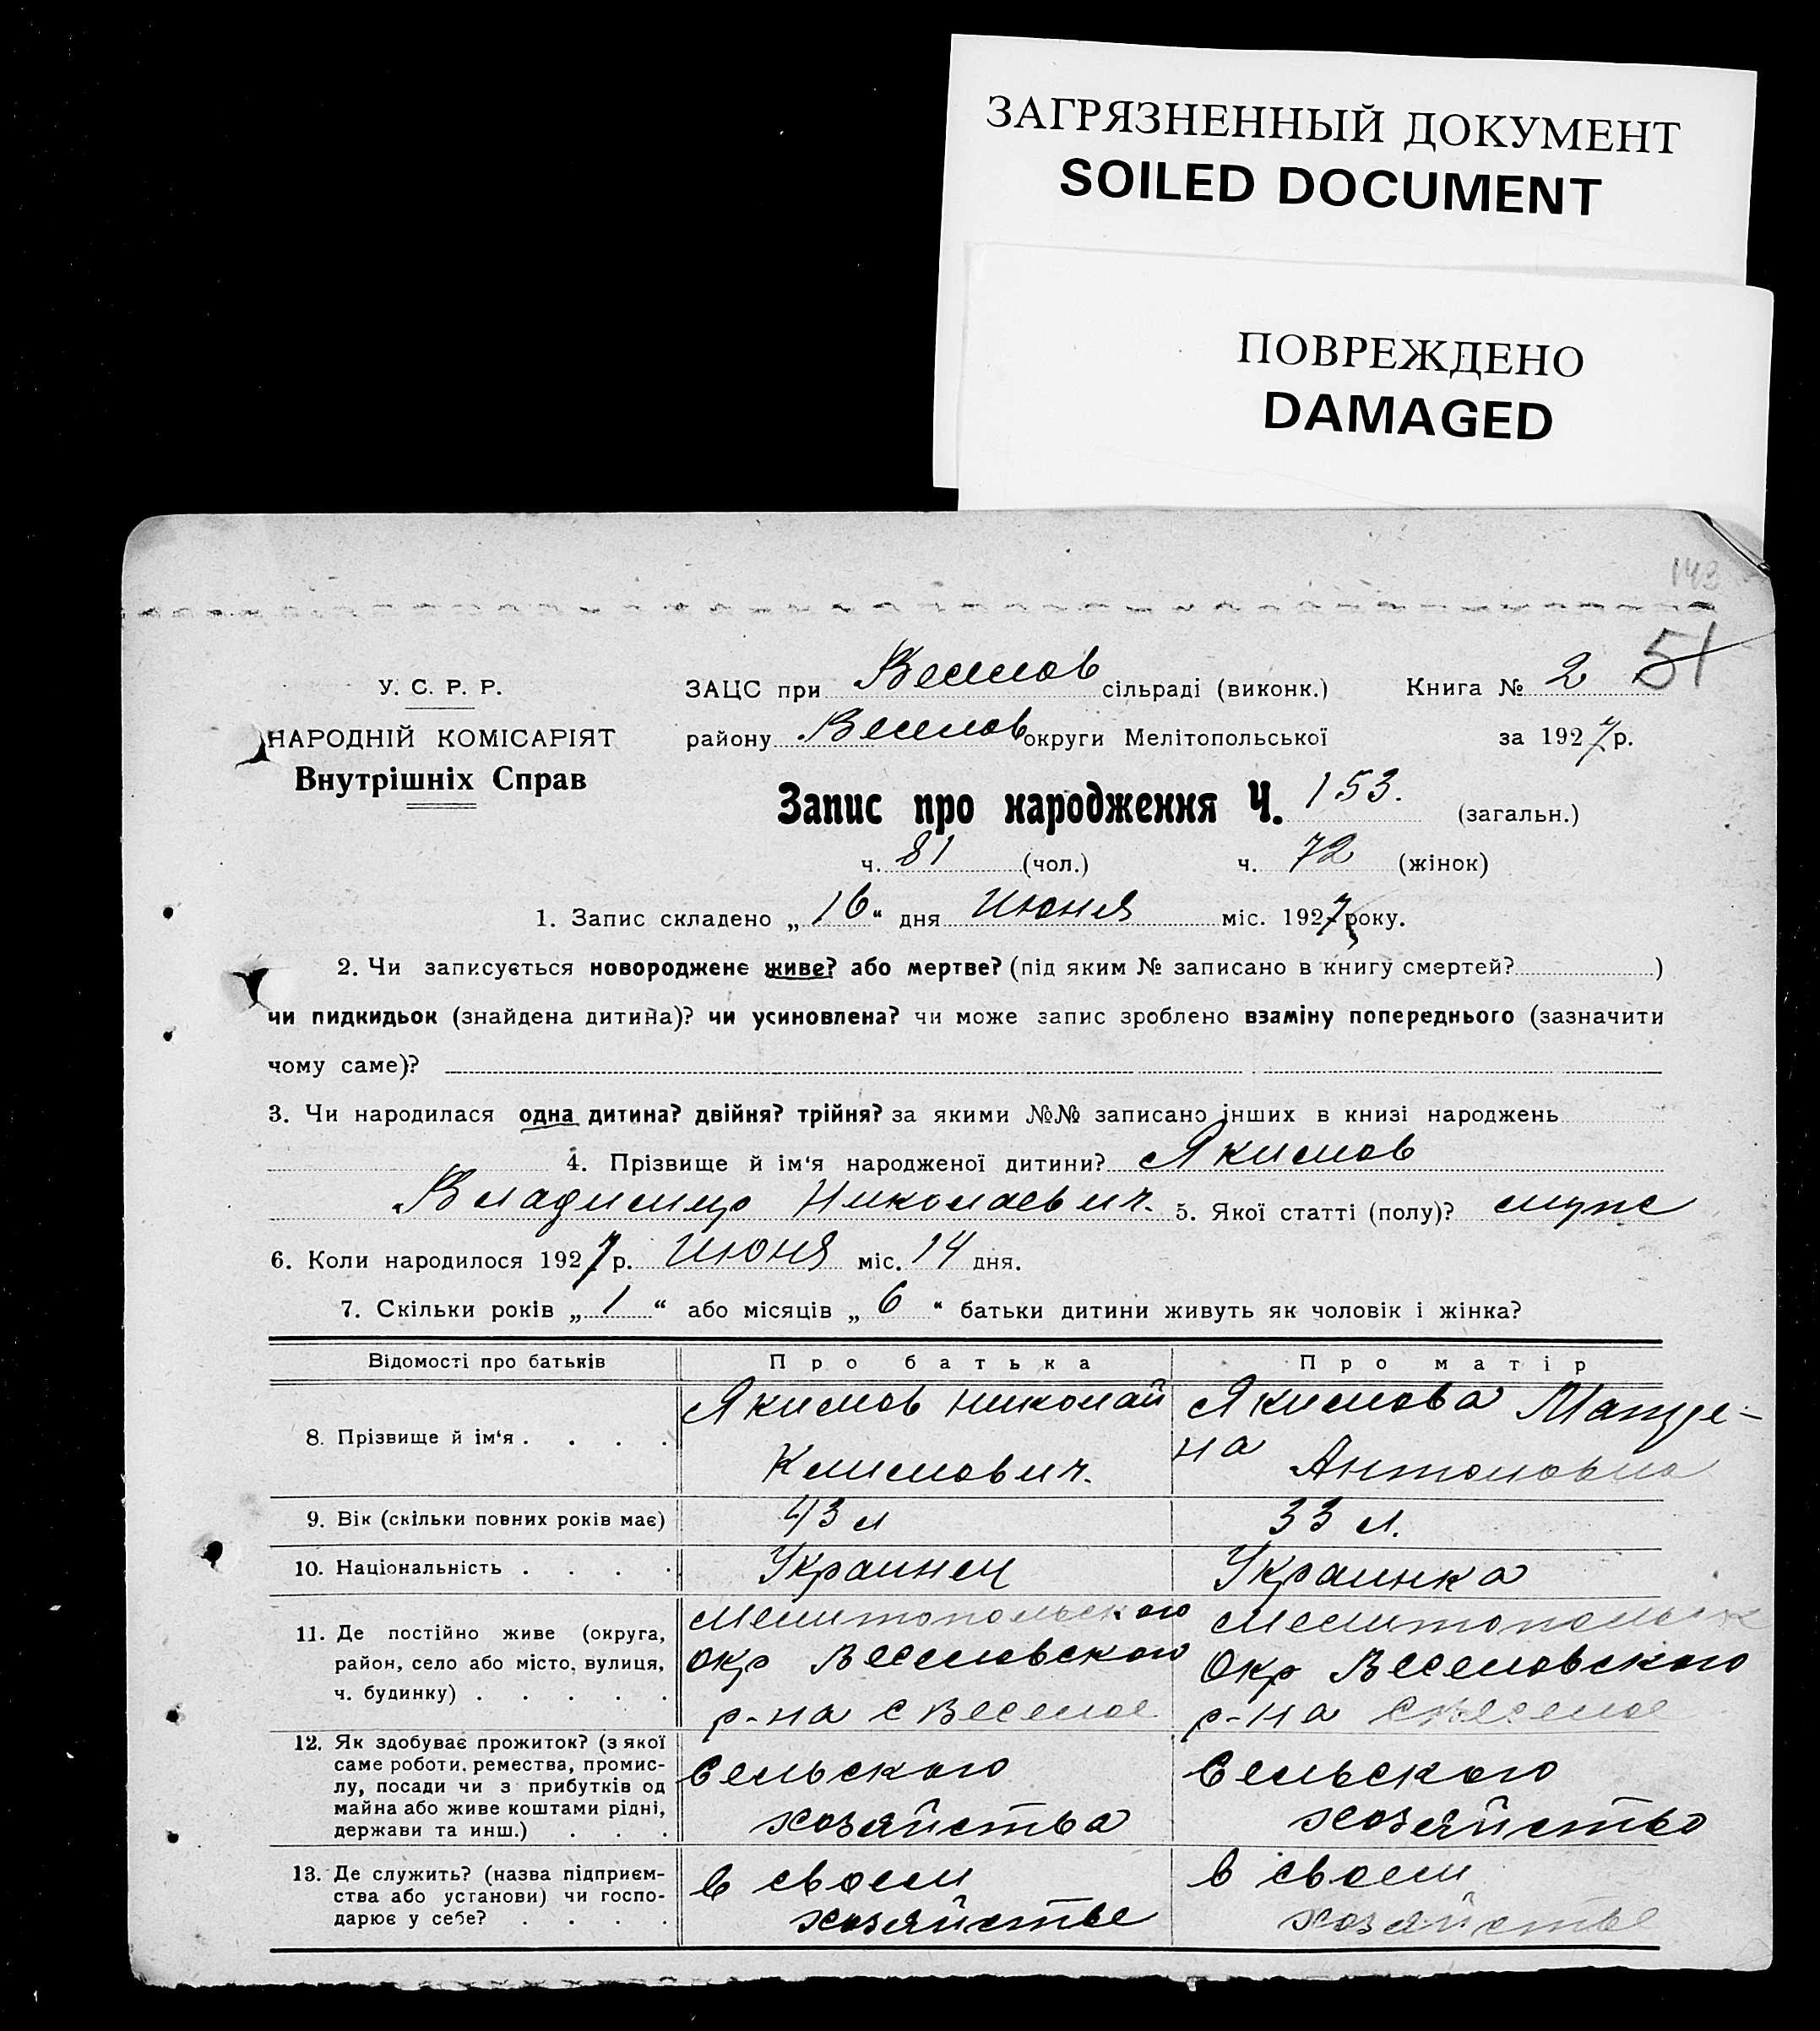 ЗАГРЯЗНЕННЫЙ ДОКУМЕНТ
SOILED DOCUMENT
ПОВРЕЖДЕНО
DAMAGED
143
51
У. С. Р. Р.
НАРОДНІЙ КОМІСАРІЯТ
Внутрішніх Справ
ЗАЦС при Веселов сільраді (виконк.) Книга № 2
району Веселов округи Мелітопольської за 1927 р.
Запис про народження Ч. 153. (загальн.)
ч. 81 (чол.) ч. 72 (жінок)
1. Запис складено „16“ дня Июня міс. 1927 року.
2. Чи записується новороджене живе? або мертве? (під яким № записано в книгу смертей? )
чи пидкидьок (знайдена дитина)? чи усиновлена? чи може запис зроблено взаміну попереднього (зазначити
чому саме)?
3. Чи народилася одна дитина? двійня? трійня? за якими №№ записано інших в книзі народжень
4. Прізвище й ім‘я народженої дитини? Якимов
Владимир Николаевич. 5. Якої статті (полу)? муже
6. Коли народилося 1927 р. Июня міс. 14 дня.
7. Скільки років „1“ або місяців „6“ батьки дитини живуть як чоловік і жінка?
Відомості про батьків Про батька Про матір
8. Прізвище й ім‘я . . . .
Якимов Николай
Климович.
Якимова
на Антоновна
9. Вік (скільки повних років має) 43 л 33 л.
10. Національність . . . . Украинец Украинка
11. Де постійно живе (округа,
район, село або місто, вулиця,
ч. будинку) . . . . .
Мелитопольского
окр Веселовского
р-на с Веселое
Мелитопольск
Окр Веселовского
р-на с Веселое
12. Як здобуває прожиток? (з якої
саме роботи, ремества, промис-
лу, посади чи з прибутків од
майна або живе коштами рідні,
держави та инш.) . . .
Сельского
хозяйства
Сельского
хозяйство
13. Де служить? (назва підприєм-
ства або установи) чи госпо-
дарює у себе? . . . .
в своем
хозяйстве
в своем
хозяйстве